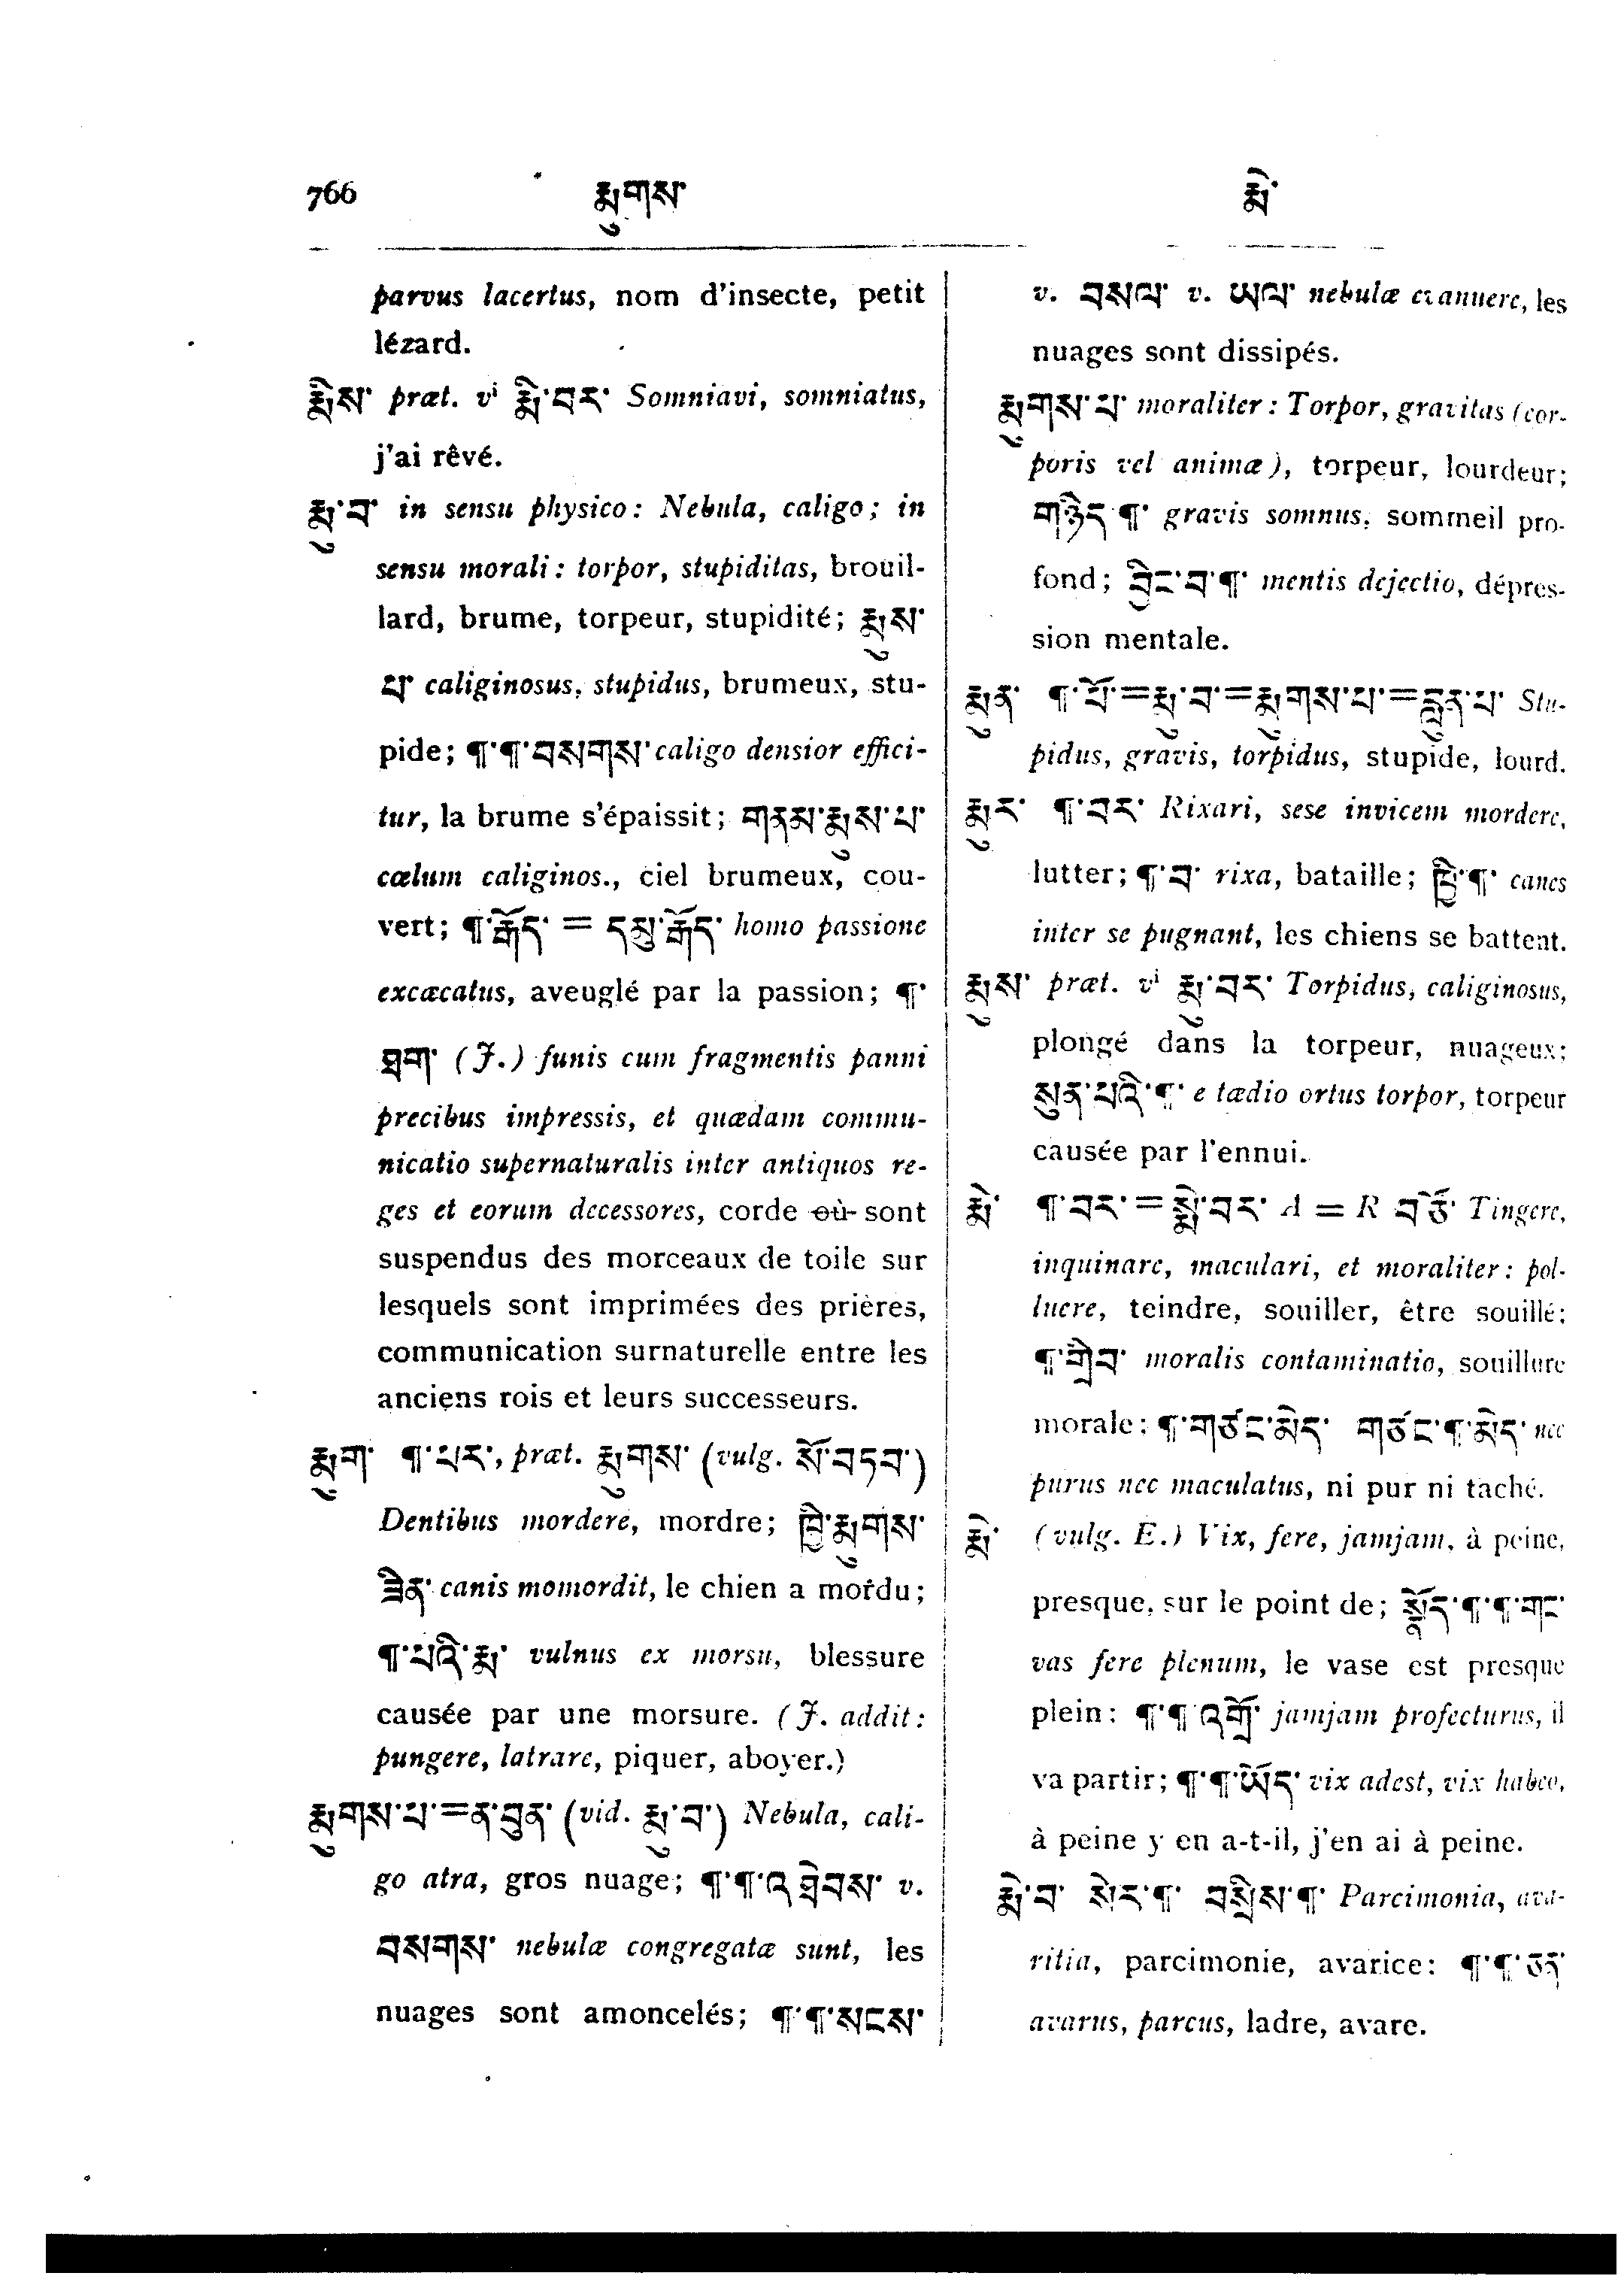 766 རྨུགས་ རྨེ་
parvus lacertus, nom d'insecte, petit
lézard.
རྨིས་ præt. vⁱ རྨི་བར་ Somniavi, somniatus,
j'ai rêvé.
རྨུ་བ་ in sensu physico: Nebula, caligo; in
sensu morali: torpor, stupiditas, brouil-
lard, brume, torpeur, stupidité; རྨུས་
པ་ caliginosus, stupidus, brumeux, stu-
pide; ¶་¶་བསགས་ caligo densior effici-
tur, la brume s'épaissit; གནམ་རྨུས་པ་
cœlum caliginos., ciel brumeux, cou-
vert; ¶་རྒོད་ = དམུ་རྒོད་ homo passione
excæcatus, aveuglé par la passion; ¶་
ཐག་ (J.) funis cum fragmentis panni
precibus impressis, et quædam commu-
nicatio supernaturalis inter antiquos re-
ges et eorum decessores, corde où sont
suspendus des morceaux de toile sur
lesquels sont imprimées des prières,
communication surnaturelle entre les
anciens rois et leurs successeurs.
རྨུག་ ¶་པར་, præt. རྨུགས་ (vulg. སོ་བཏབ་)
Dentibus mordere, mordre; ཁྱི་རྨུགས་
ཟིན་ canis momordit, le chien a mordu;
¶་པའི་རྨ་ vulnus ex morsu, blessure
causée par une morsure. (J. addit:
pungere, latrare, piquer, aboyer.)
རྨུགས་པ་=ན་བུན་ (vid. རྨུ་བ་) Nebula, cali-
go atra, gros nuage; ¶་¶་འཐིབས་ v.
བསགས་ nebulæ congregatæ sunt, les
nuages sont amoncelés; ¶་¶་སངས་
v. བསལ་ v. ཡལ་ nebulæ evanuere, les
nuages sont dissipés.
རྨུགས་པ་ moraliter: Torpor, gravitas (cor-
poris vel animæ), torpeur, lourdeur;
གཉིད་¶་ gravis somnus, sommeil pro-
fond; བྱིང་བ་¶་ mentis dejectio, dépres-
sion mentale.
རྨུན་ ¶་པོ་=རྨུ་བ་=རྨུགས་པ་=བླུན་པ་ Stu-
pidus, gravis, torpidus, stupide, lourd.
རྨུར་ ¶་བར་ Rixari, sese invicem mordere,
lutter; ¶་བ་ rixa, bataille; ཁྱི་¶་ canes
inter se pugnant, les chiens se battent.
རྨུས་ præt. vⁱ རྨུ་བར་ Torpidus, caliginosus,
plongé dans la torpeur, nuageux;
སུན་པའི་¶་ e tædio ortus torpor, torpeur
causée par l'ennui.
རྨེ་ ¶་བར་=སྨྲེ་བར་ A = R བཙོ་ Tingere,
inquinare, maculari, et moraliter: pol-
luere, teindre, souiller, être souillé;
¶་གྲིབ་ moralis contaminatio, souillure
morale; ¶་གཙང་མེད་ གཙང་¶་མེད་ nec
purus nec maculatus, ni pur ni taché.
རྨེ་ (vulg. E.) Vix, fere, jamjam, à peine,
presque, sur le point de; སྣོད་¶་¶་གང་
vas fere plenum, le vase est presque
plein; ¶་¶་འགྲོ་ jamjam profecturus, il
va partir; ¶་¶་ཡོད་ vix adest, vix habeo,
à peine y en a-t-il, j'en ai à peine.
རྨེ་བ་ སེར་¶་ བསྲིས་¶་ Parcimonia, ava-
ritia, parcimonie, avarice; ¶་¶་ཅན་
avarus, parcus, ladre, avare.